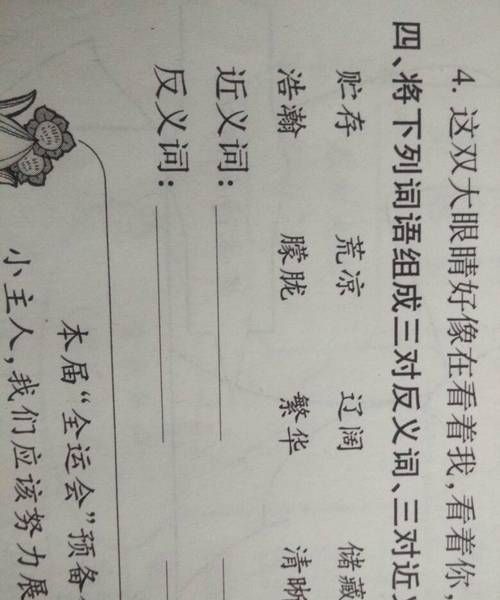 4. 这双大眼睛好像在看着我,看着你,
四、将下列词语组成三对反义词、三对近义
贮存 荒凉 辽阔 储藏
浩瀚 朦胧 繁华 清晰
近义词:
反义词:
本届“全运会”预备
小主人,我们应该努力展